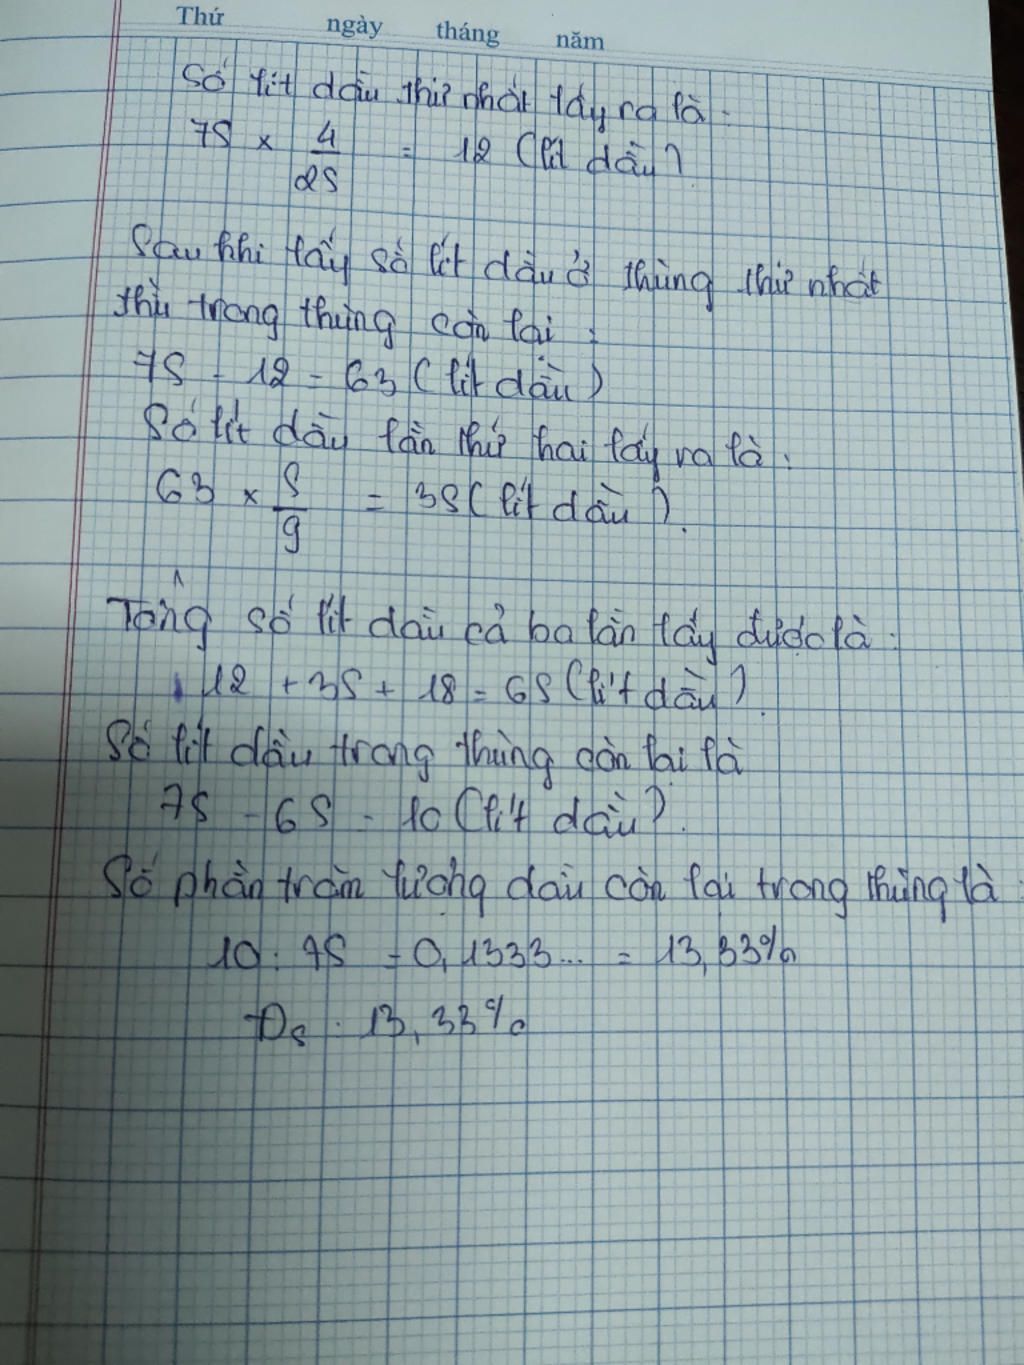 Thứ ngày tháng năm
Số lít dầu thứ nhất lấy ra là.
75 × 4/25 = 12 (lít dầu)
Sau khi lấy số lít dầu ở thùng thứ nhất
thì trong thùng còn lại :
75 - 12 = 63 (lít dầu)
Số lít dầu lần thứ hai lấy ra là.
63 × 5/9 = 35 (lít dầu).
Tổng số lít dầu cả ba lần lấy được là.
12 + 35 + 18 = 65 (lít dầu).
Số lít dầu trong thùng còn lại là
75 - 65 = 10 (lít dầu).
Số phần trăm lượng dầu còn lại trong thùng là :
10 : 75 = 0,1333... = 13,33%
Đs : 13,33%